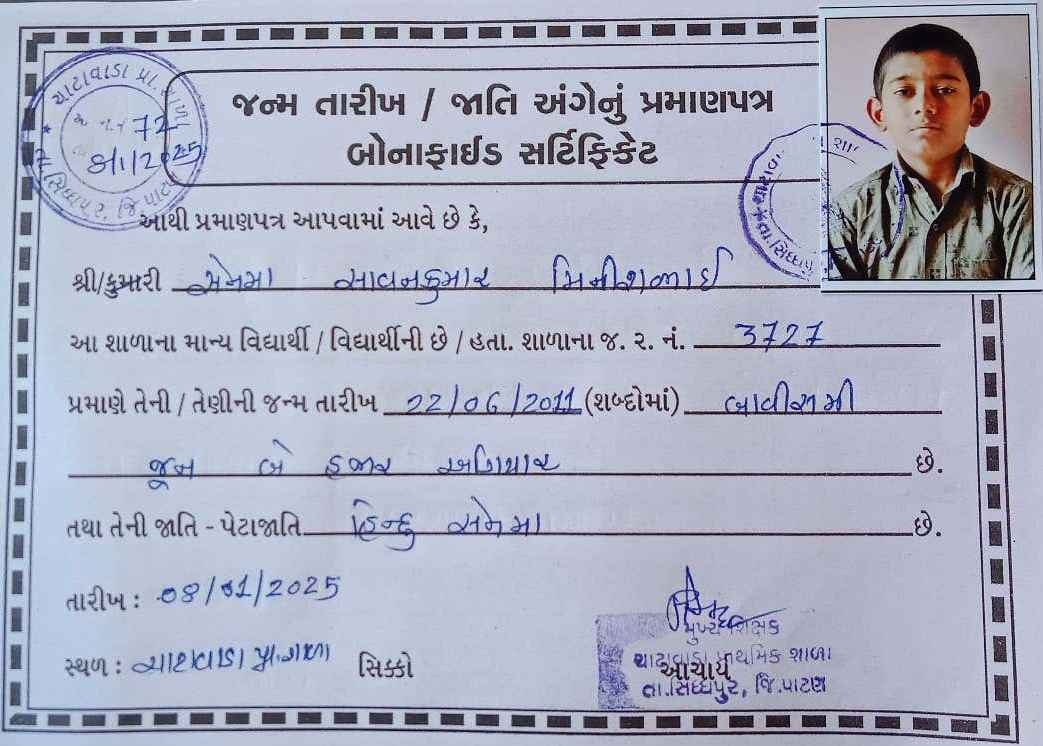 જન્મ તારીખ / જાતિ અંગેનું પ્રમાણપત્ર
બોનાફાઈડ સર્ટિફિકેટ
72
8/1/2025
આથી પ્રમાણપત્ર આપવામાં આવે છે કે,
શ્રી/કુમારી સેનમા સાવનકુમાર મિનીશભાઈ
આ શાળાના માન્ય વિદ્યાર્થી / વિદ્યાર્થીની છે / હતા. શાળાના જ. ર. નં. 3727
પ્રમાણે તેની / તેણીની જન્મ તારીખ 22/06/2011 (શબ્દોમાં) બાવીસમી
જૂન બે હજાર અગિયાર છે.
તથા તેની જાતિ - પેટાજાતિ હિન્દુ સેનમા છે.
તારીખ : 08/01/2025
મુખ્ય શિક્ષક
સ્થળ : ચાટાવાડા પ્રા.શાળા સિક્કો
ચાટાવાડા પ્રાથમિક શાળા
આચાર્ય
તા.સિધ્ધપુર, જિ.પાટણ